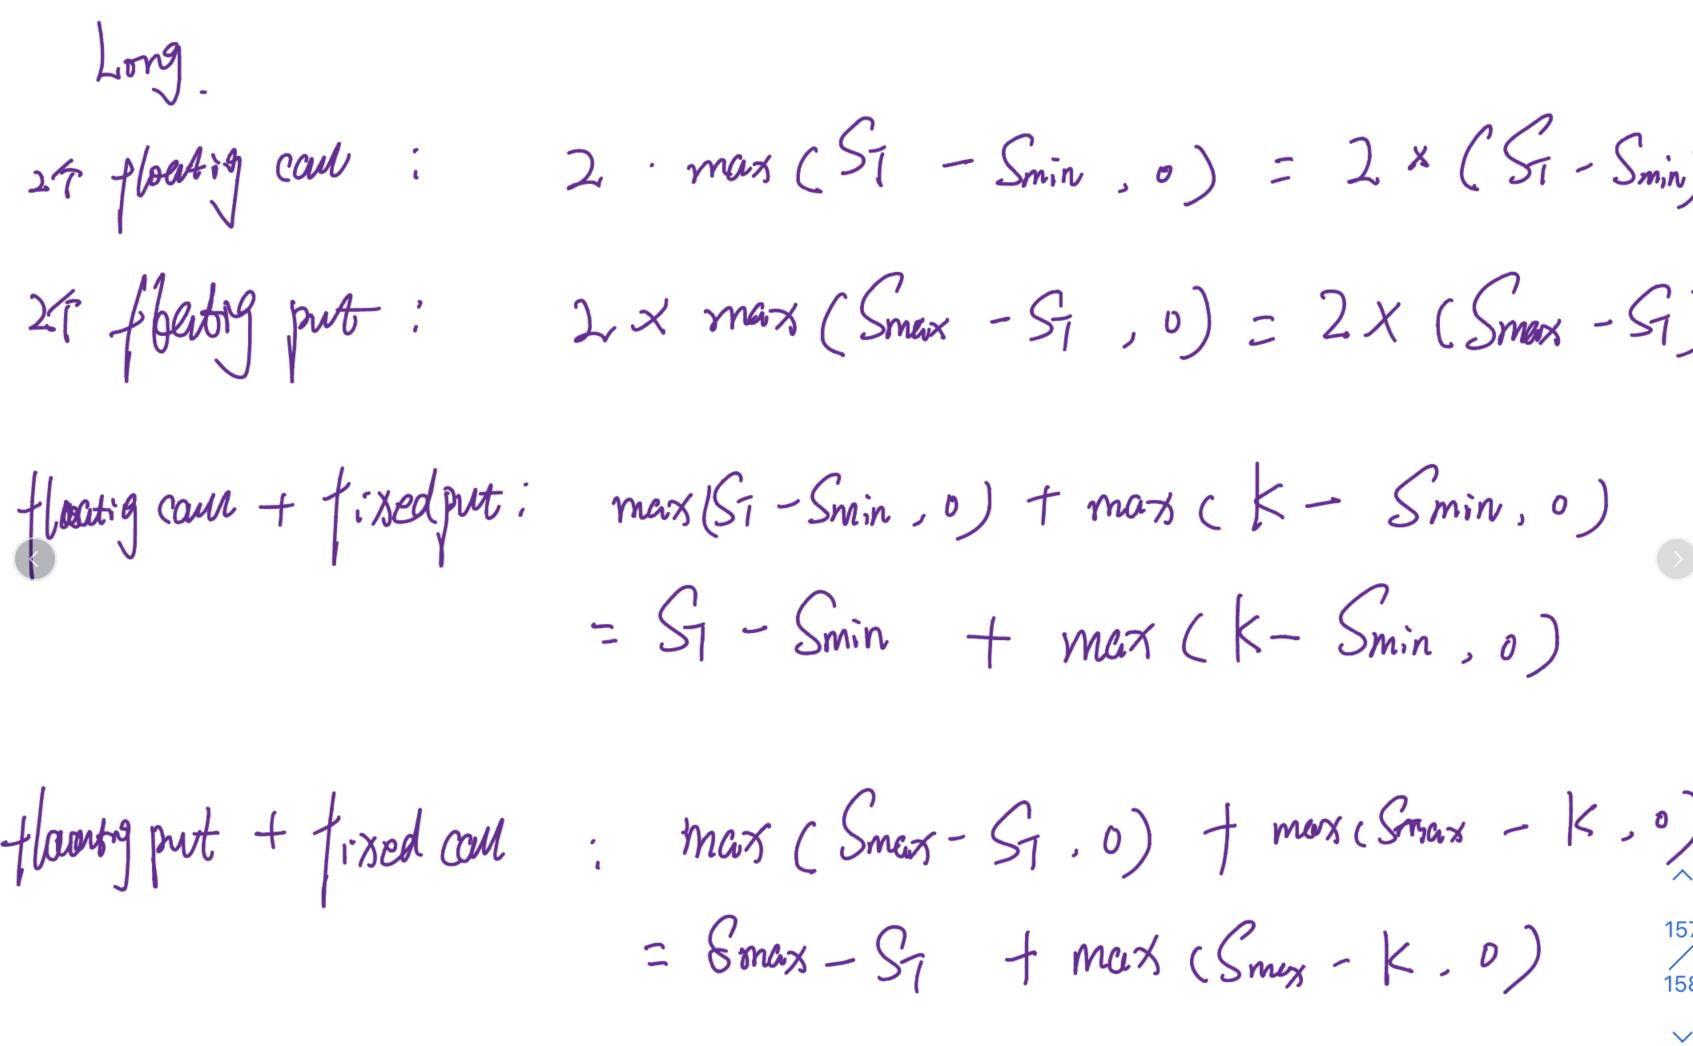 Long.
2个 floating call : 2 · max ( S_T - S_min , 0 ) = 2 × ( S_T - S_min )
2个 floating put : 2 × max ( S_max - S_T , 0 ) = 2 × ( S_max - S_T )
floating call + fixed put : max ( S_T - S_min , 0 ) + max ( K - S_min , 0 )
= S_T - S_min + max ( K - S_min , 0 )
floating put + fixed call : max ( S_max - S_T , 0 ) + max ( S_max - K , 0 )
= S_max - S_T + max ( S_max - K , 0 )
157
/
158